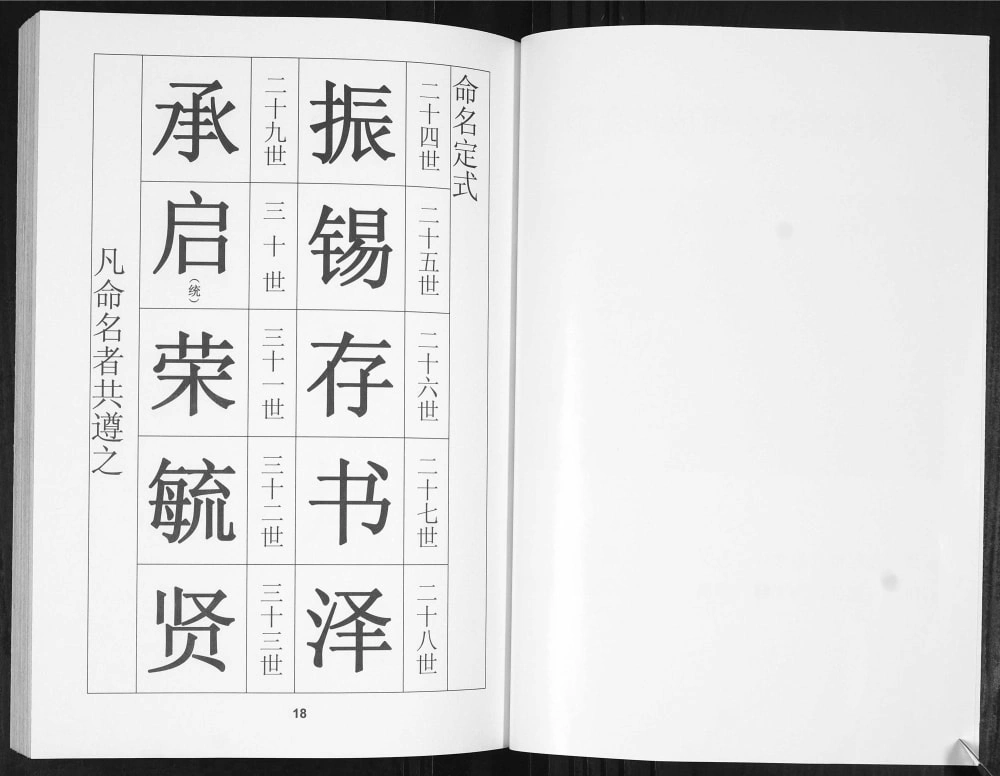 命名定式
二十四世
振
二十五世
锡
二十六世
存
二十七世
书
二十八世
泽
二十九世
承
三十世
启
（统）
三十一世
荣
三十二世
毓
三十三世
贤
凡命名者共遵之
18